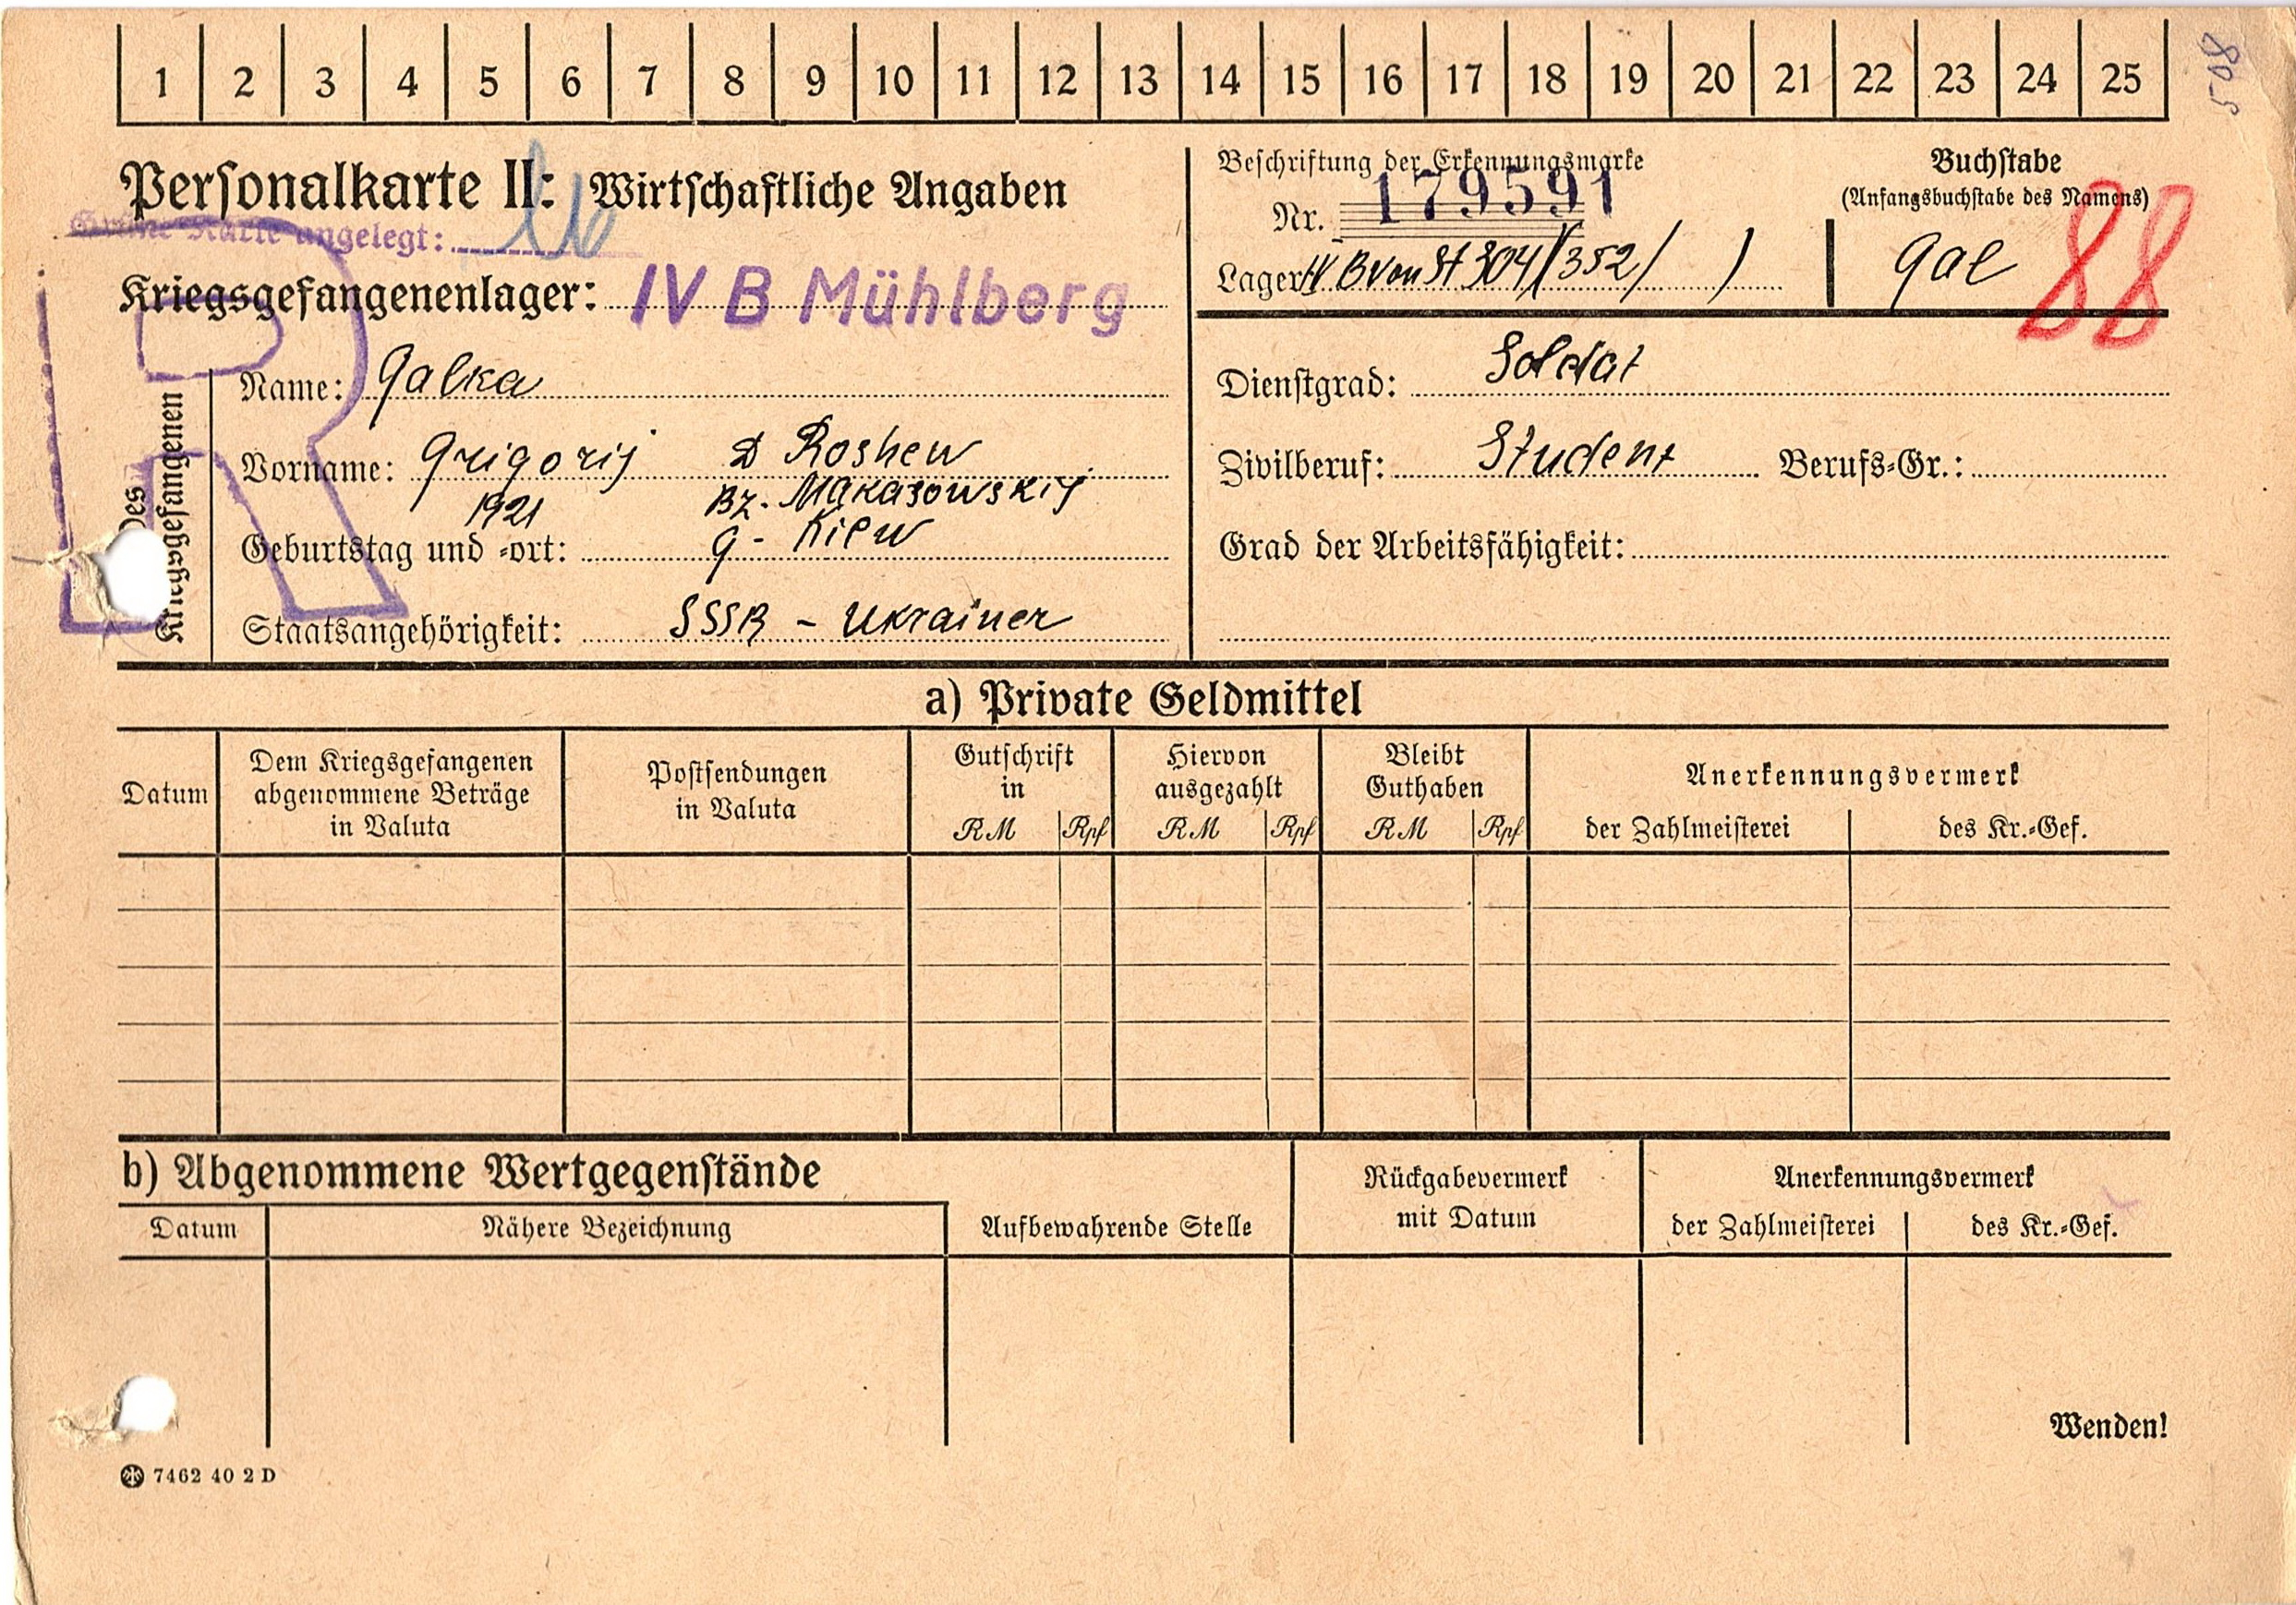 1 2 3 4 5 6 7 8 9 10 11 12 13 14 15 16 17 18 19 20 21 22 23 24 25
508
Personalkarte II: Wirtschaftliche Angaben
Grüne Karte angelegt:
Kriegsgefangenenlager: IV B Mühlberg
Des Kriegsgefangenen
Name: Galka
Vorname: Grigorij D Roshew
1921 Bz. Makasowskij
Geburtstag und -ort: G - Kiew
Staatsangehörigkeit: SSSR - Ukrainer
Beschriftung der Erkennungsmarke
Nr. 179591
Lager: IV B von St 304 (352/ )
Buchstabe
(Anfangsbuchstabe des Namens)
Gal
88
Dienstgrad: Soldat
Zivilberuf: Student Berufs-Gr.:
Grad der Arbeitsfähigkeit:
a) Private Geldmittel
Datum
Dem Kriegsgefangenen
abgenommene Beträge
in Valuta
Postsendungen
in Valuta
Gutschrift
in
RM Rpf
Hiervon
ausgezahlt
RM Rpf
Bleibt
Guthaben
RM Rpf
Anerkennungsvermerk
der Zahlmeisterei des Kr.-Gef.
b) Abgenommene Wertgegenstände
Datum Nähere Bezeichnung
Aufbewahrende Stelle
Rückgabevermerk
mit Datum
Anerkennungsvermerk
der Zahlmeisterei des Kr.-Gef.
Wenden!
7462 40 2 D